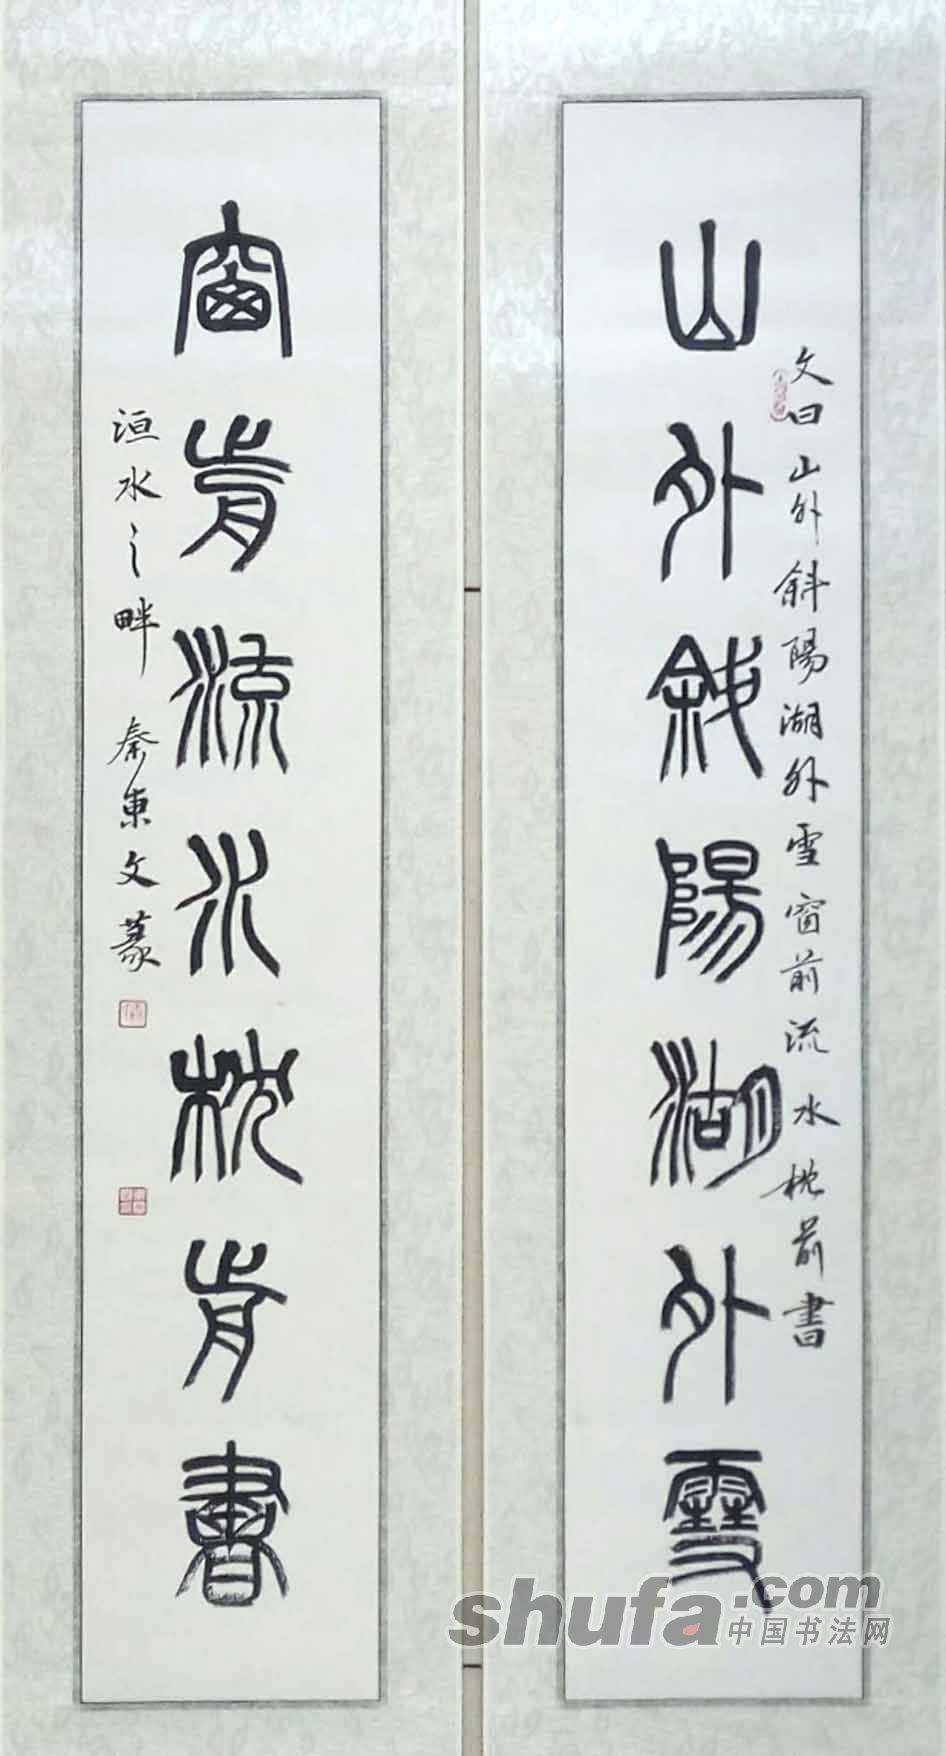 山外斜陽湖外雪
文曰山外斜陽湖外雪窗前流水枕前書
窗前流水枕前書
洹水之畔秦東文篆
shufa.com
中国书法网